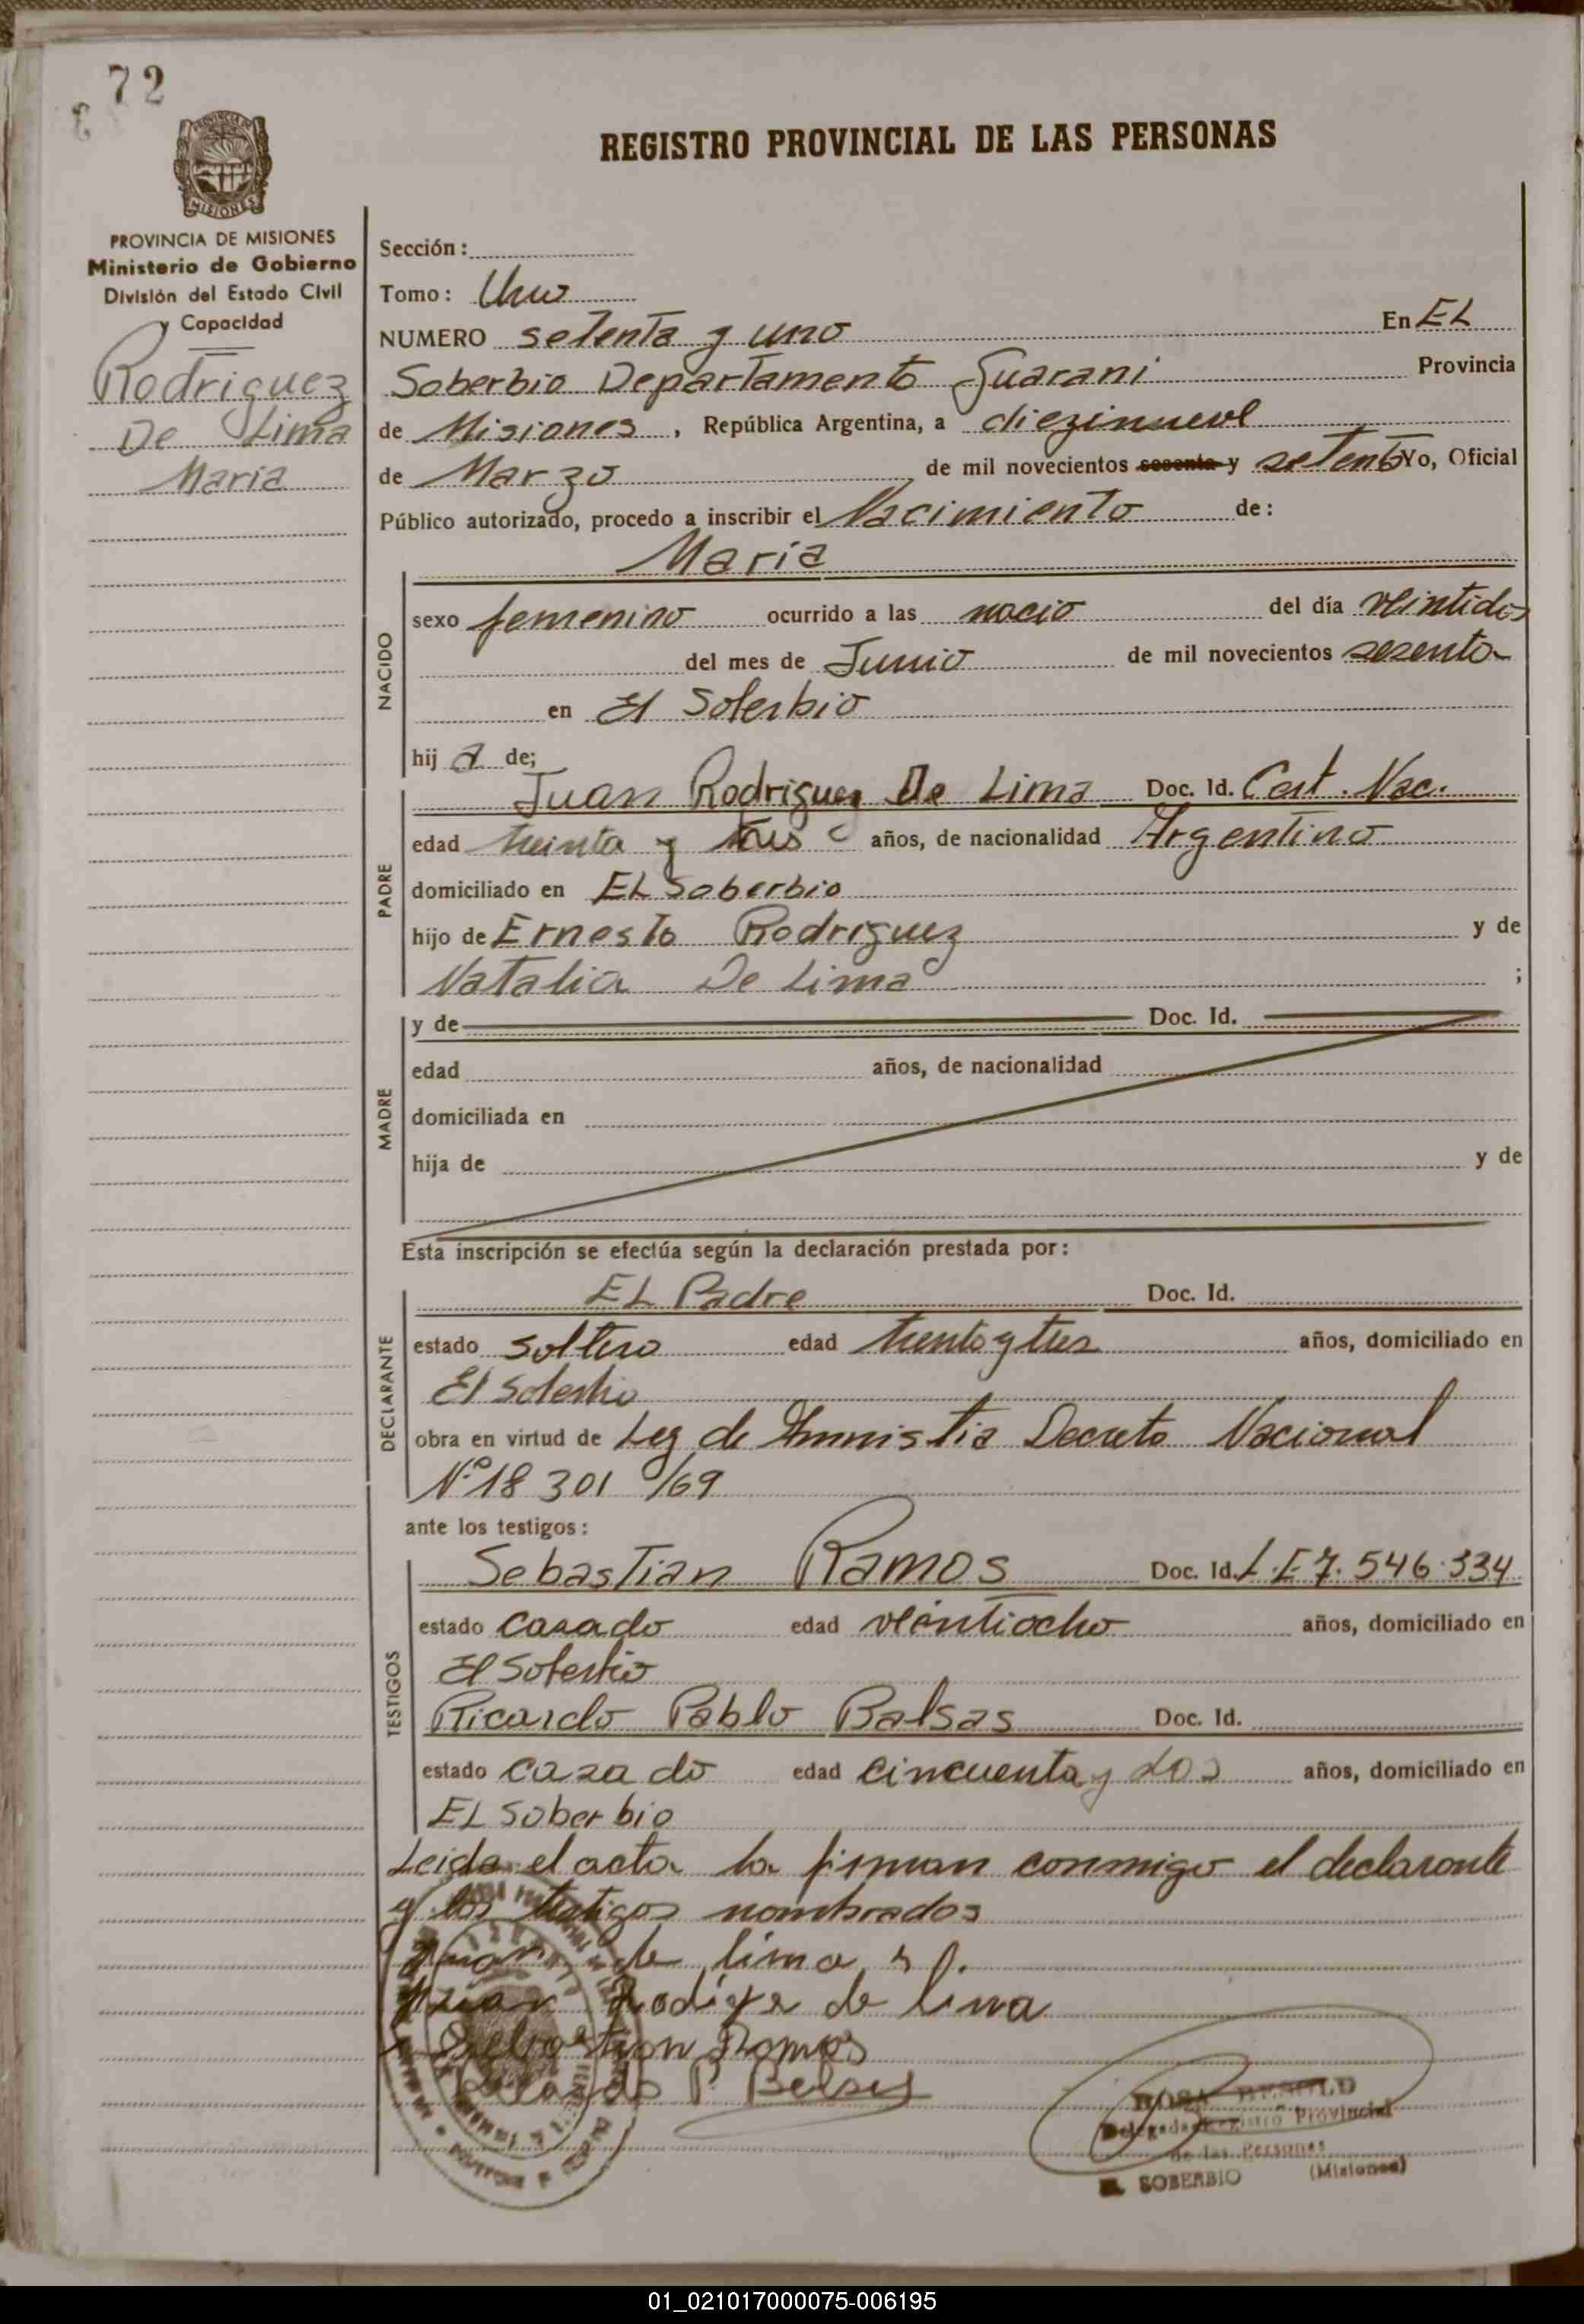 72
REGISTRO PROVINCIAL DE LAS PERSONAS
PROVINCIA DE
MISIONES
PROVINCIA DE MISIONES
Ministerio de Gobierno
División del Estado Civil
y Capacidad
Rodriguez
De Lima
Maria
Sección:
Tomo: Uno
NUMERO setenta y uno En EL
Soberbio Departamento Guarani Provincia
de Misiones, República Argentina, a diezinueve
de Marzo de mil novecientos sesenta y setenta Yo, Oficial
Público autorizado, procedo a inscribir el Nacimiento de:
Maria
NACIDO
sexo femenino ocurrido a las nacio del día veintidos
del mes de Junio de mil novecientos sesenta
en El Soberbio
hij a de;
PADRE
Juan Rodriguez De Lima Doc. Id. Cert. Nac.
edad treinta y tres años, de nacionalidad Argentino
domiciliado en EL Soberbio
hijo de Ernesto Rodriguez y de
Natalia De Lima ;
MADRE
y de Doc. Id.
edad años, de nacionalidad
domiciliada en
hija de y de
Esta inscripción se efectúa según la declaración prestada por:
DECLARANTE
EL Padre Doc. Id.
estado soltero edad treinta y tres años, domiciliado en
El Soberbio
obra en virtud de Ley de Amnistia Decreto Nacional
Nº 18 301 /69
ante los testigos:
TESTIGOS
Sebastian Ramos Doc. Id. L.E 7.546.334
estado casado edad veintiocho años, domiciliado en
El Soberbio
Ricardo Pablo Balsas Doc. Id.
estado casado edad cincuenta y dos años, domiciliado en
EL Soberbio
Leida el acta la firman conmigo el declarante
y los testigos nombrados
Juan de lima
Juan de lima
Sebastian Ramos
Ricardo P.
ROSA
Delegada Registro Provincial
de las Personas
EL SOBERBIO (Misiones)
01_021017000075-006195